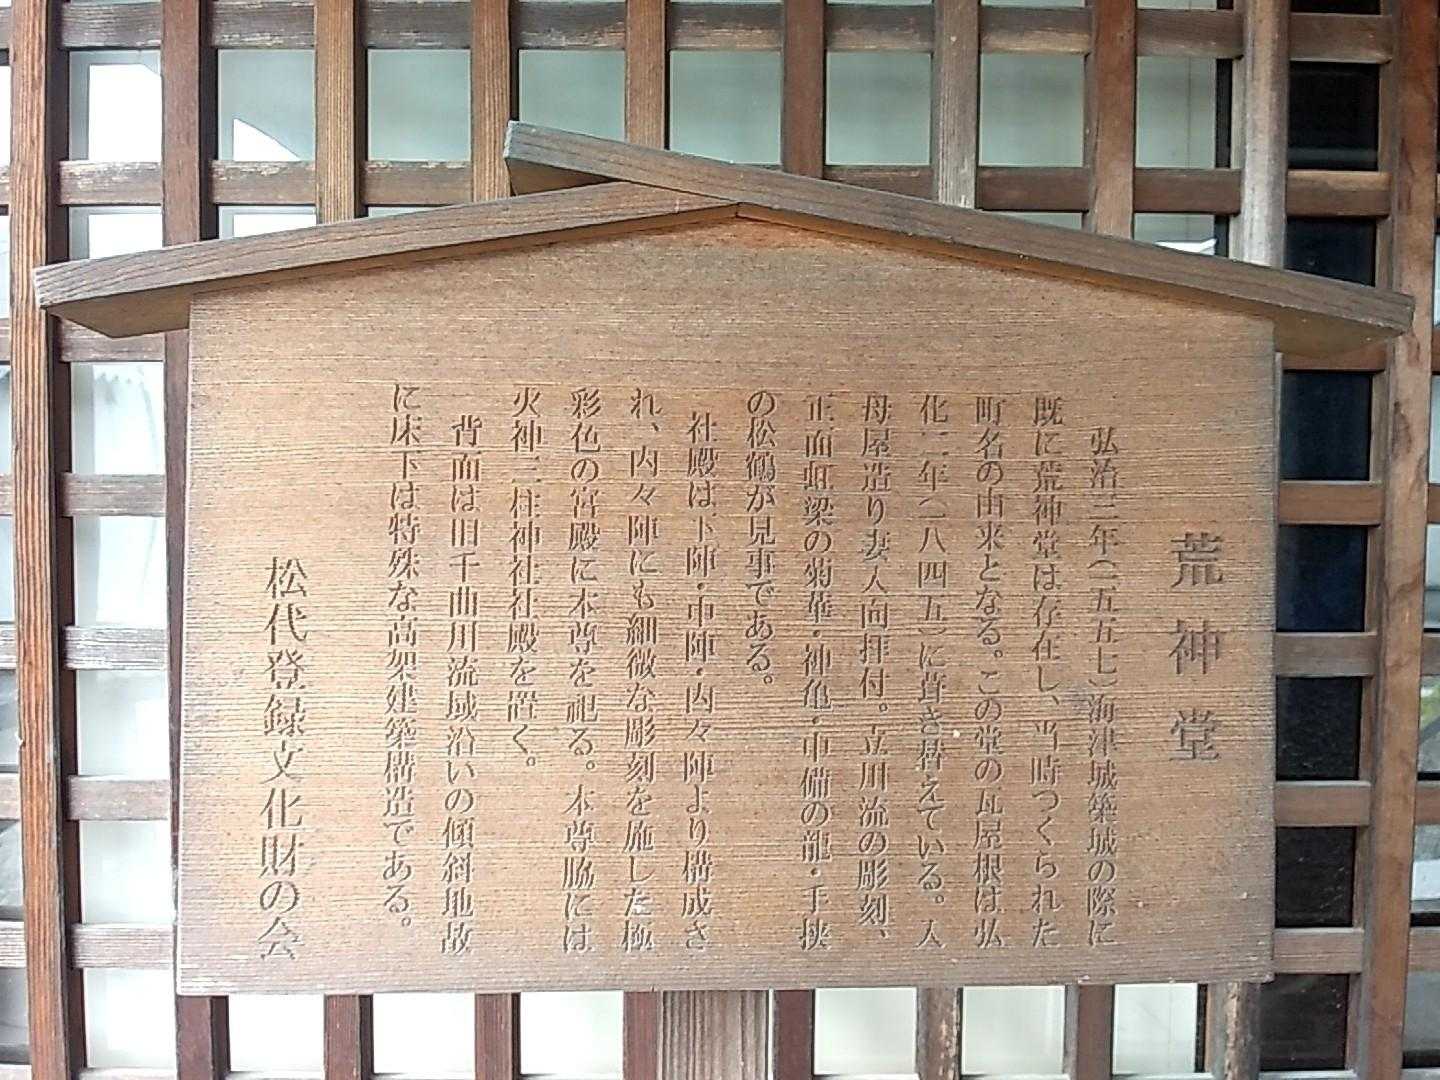 荒神堂
弘治三年(一五五七)海津城築城の際に
既に荒神堂は存在し、当時つくられた
町名の由来となる。この堂の瓦屋根は弘
化二年(一八四五)に葺き替えている。入
母屋造り妻入向拝付。立川流の彫刻、
正面虹梁の菊華・神亀・中備の龍・手挟
の松鶴が見事である。
社殿は下陣・中陣・内々陣より構成さ
れ、内々陣にも細微な彫刻を施した極
彩色の宮殿に本尊を祀る。本尊脇には
火神三柱神社社殿を置く。
背面は旧千曲川流域沿いの傾斜地故
に床下は特殊な高架建築構造である。
松代登録文化財の会